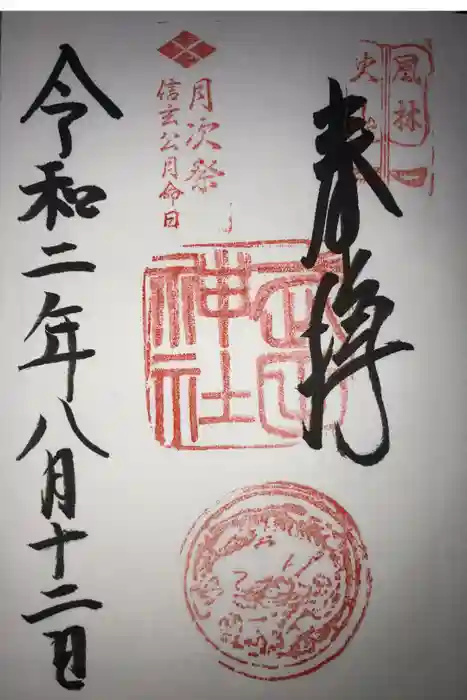 風林
火山
奉拝
月次祭
信玄公月命日
武田
神社
令和二年八月十二日